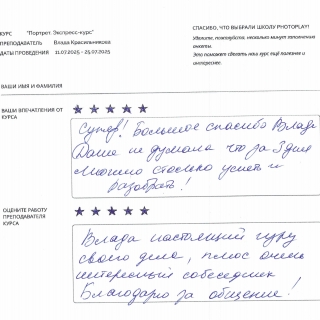 КУРС "Портрет. Экспресс-курс"
ПРЕПОДАВАТЕЛЬ Влада Красильникова
ДАТЫ ПРОВЕДЕНИЯ 11.07.2025 - 25.07.2025
СПАСИБО, ЧТО ВЫБРАЛИ ШКОЛУ PHOTOPLAY!
Уделите, пожалуйста, несколько минут заполнению
анкеты.
Это поможет сделать наш курс ещё полезнее и
интереснее.
ВАШИ ИМЯ И ФАМИЛИЯ
ВАШИ ВПЕЧАТЛЕНИЯ ОТ
КУРСА
Супер! Большое спасибо Владе
Даже не думала что за 3 дня
можно столько успеть и
разобрать!
ОЦЕНИТЕ РАБОТУ
ПРЕПОДАВАТЕЛЯ
КУРСА
Влада настоящий гуру
своего дела, плюс очень
интересный собеседник
Благодарю за общение!